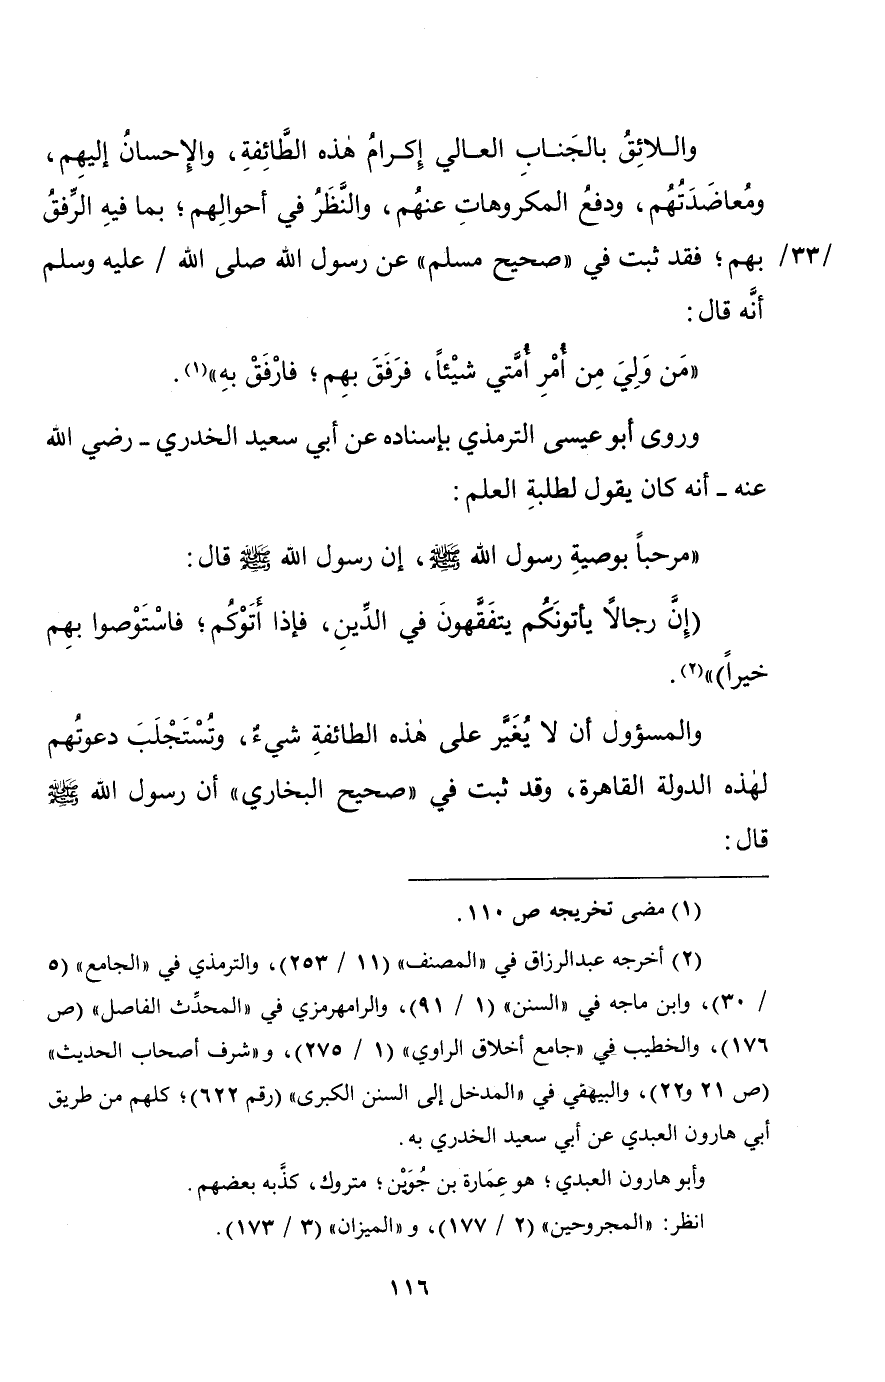 واللائِقُ بالجَنابِ العالي إكرامُ هٰذه الطَّائِفةِ، والإِحسانُ إليهِم،
ومُعاضَدَتُهُم، ودفعُ المكروهاتِ عنهُم، والنَّظَرُ في أحوالِهم؛ بما فيهِ الرِّفقُ
/٣٣/ بهم؛ فقد ثبت في «صحيح مسلم» عن رسول الله صلى الله / عليه وسلم
أنَّه قال:
«مَن وَلِيَ مِن أُمْرِ أُمَّتي شيْئاً، فرَفَقَ بهِم؛ فارْفَقْ بهِ»(١).
وروى أبو عيسى الترمذي بإسناده عن أبي سعيد الخدري ـ رضي الله
عنه ـ أنه كان يقول لطلبةِ العلم:
«مرحباً بوصيةِ رسول الله ﷺ، إن رسول الله ﷺ قال:
(إنَّ رجالاً يأتونَكُم يتفَقَّهونَ في الدِّينِ، فإذا أَتَوْكُم؛ فاسْتَوْصوا بهِم
خيراً)»(٢).
والمسؤول أن لا يُغَيَّر على هٰذه الطائفةِ شيءٌ، وتُسْتَجْلَبَ دعوتُهم
لهٰذه الدولة القاهرة، وقد ثبت في «صحيح البخاري» أن رسول الله ﷺ
قال:
(١) مضى تخريجه ص ١١٠.
(٢) أخرجه عبدالرزاق في «المصنف» (١١ / ٢٥٣)، والترمذي في «الجامع» (٥
/ ٣٠)، وابن ماجه في «السنن» (١ / ٩١)، والرامهرمزي في «المحدِّث الفاصل» (ص
١٧٦)، والخطيب في «جامع أخلاق الراوي» (١ / ٢٧٥)، و«شرف أصحاب الحديث»
(ص ٢١ و٢٢)، والبيهقي في «المدخل إلى السنن الكبرى» (رقم ٦٢٢)؛ كلهم من طريق
أبي هارون العبدي عن أبي سعيد الخدري به.
وأبو هارون العبدي؛ هو عِمَارة بن جُوَيْن؛ متروك، كذَّبه بعضهم.
انظر: «المجروحين» (٢ / ١٧٧)، و«الميزان» (٣ / ١٧٣).
١١٦